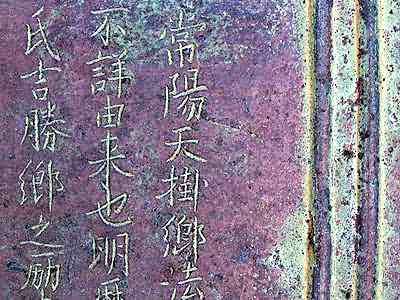 常陽天掛郷法
不詳由来也明暦
氏吉勝郷之励